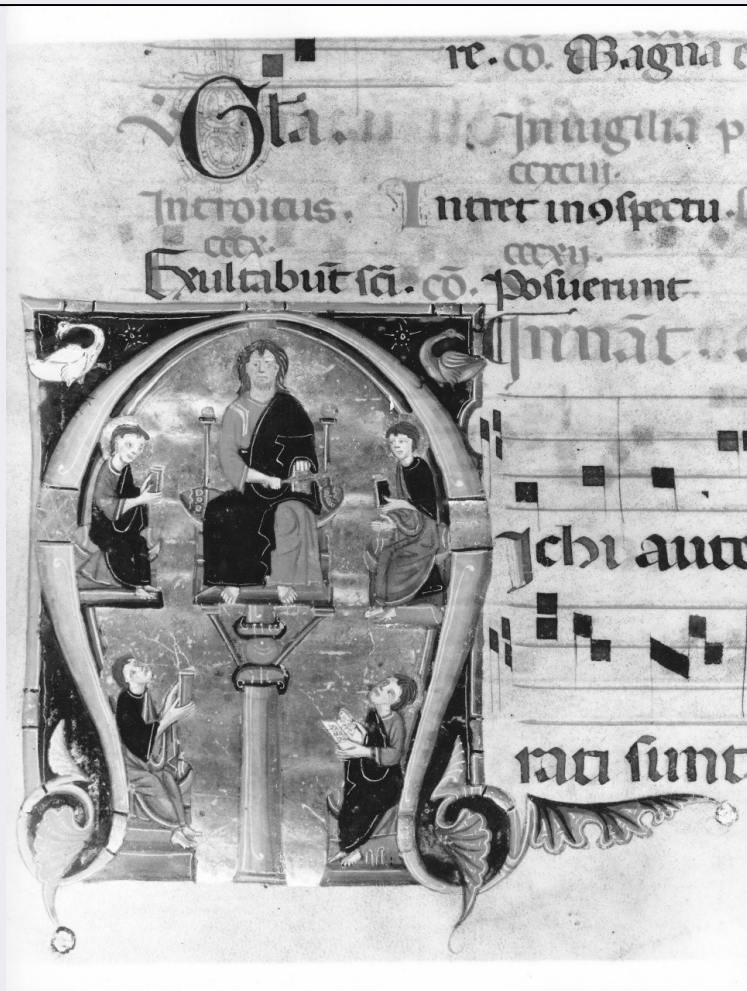 re. cō. Magna e
Gl̄a. In uigilia p
ccxciii.
Introitus. Intret in ꝯspectu.
cccx. cccxii.
Exultabūt sc̄i. cō. Posuerunt
ichi aute
rati sunt